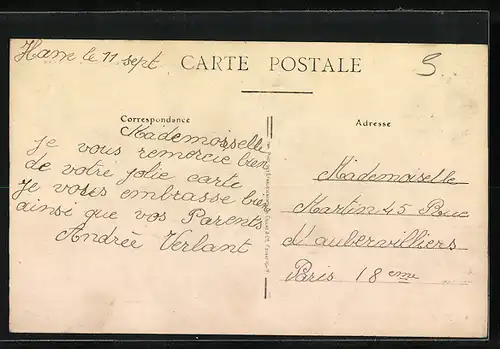 Havre le 11 sept
CARTE POSTALE
5
Correspondance
Adresse
Mademoiselle
je vous remercie bien
de votre jolie carte
Je vous embrasse bien
ainsi que vos Parents
Andrée Verlant
Mademoiselle
Martin 45 Rue
d'aubervilliers
Paris 18eme